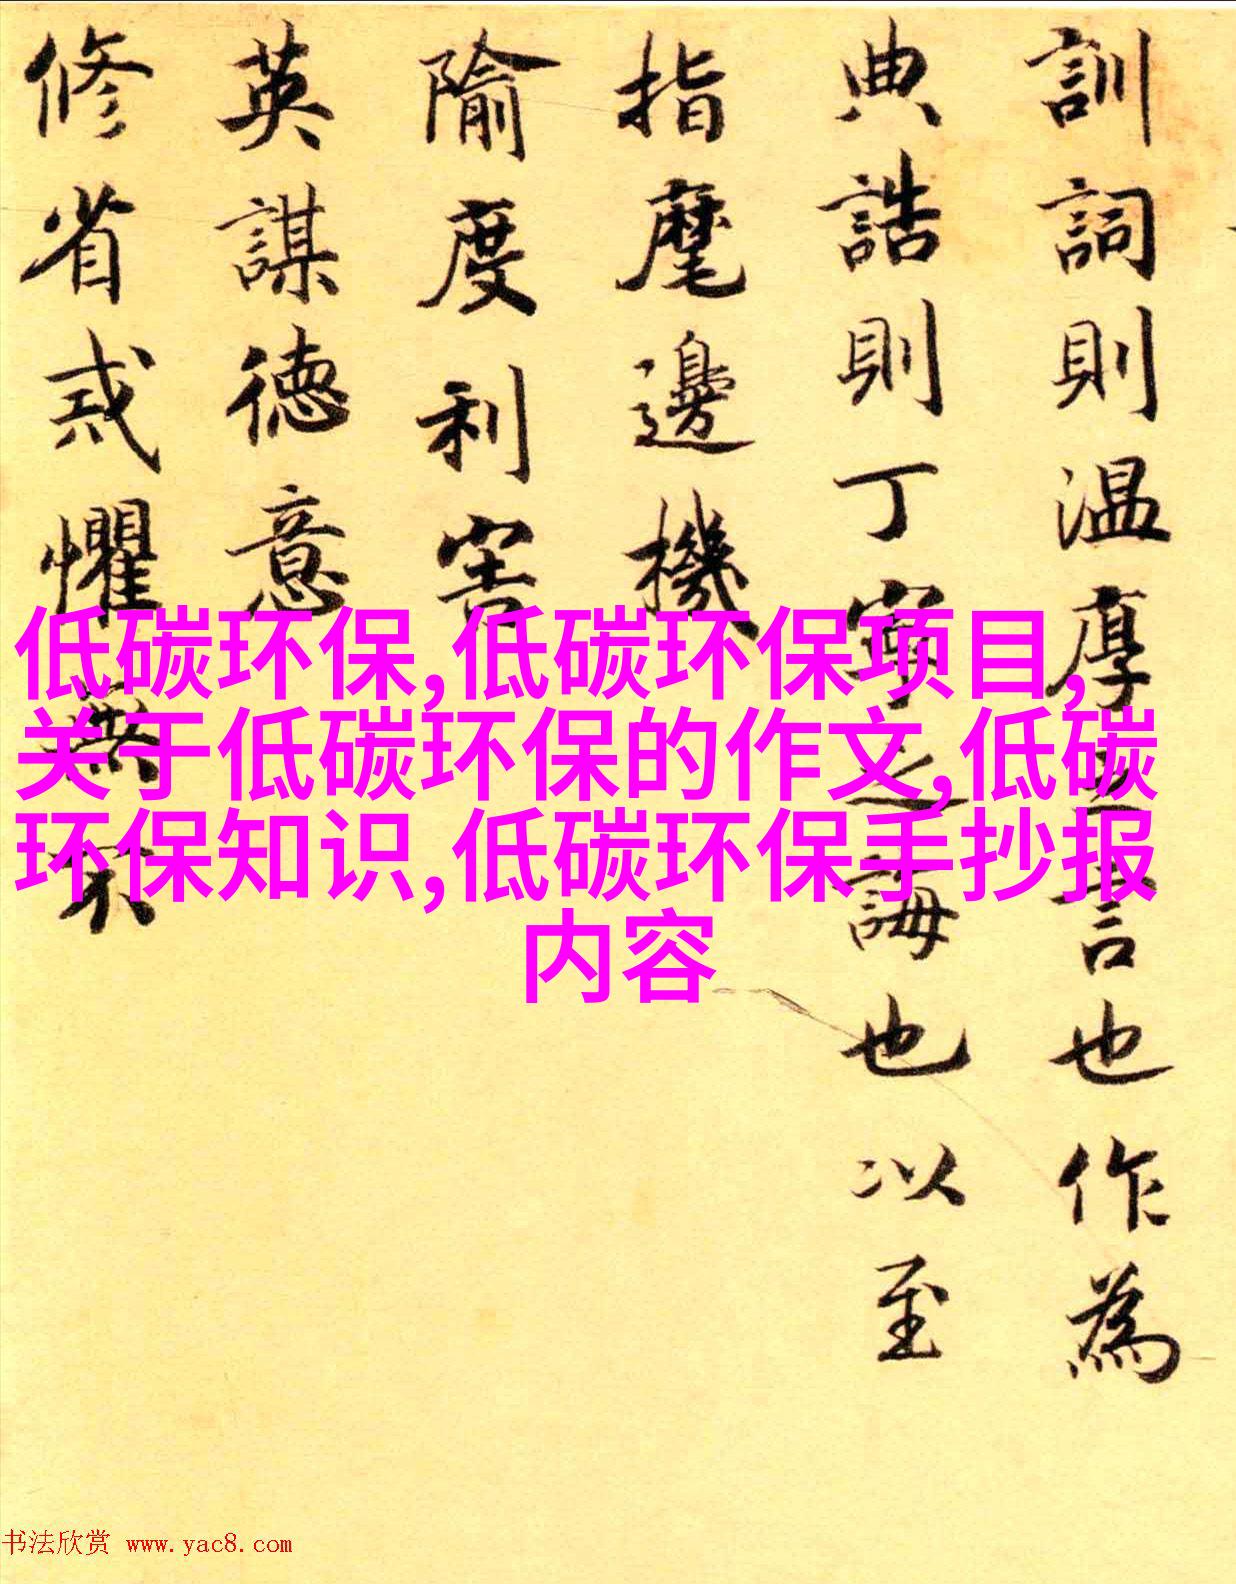 訓詞則温厚言也作為
典誥則丁寧之誨也以至
指麾邊機
隃度利害
英謀徳意
修省戒懼無不
低碳环保,低碳环保项目,
关于低碳环保的作文,低碳
环保知识,低碳环保手抄报
内容
书法欣赏 www.yac8.com